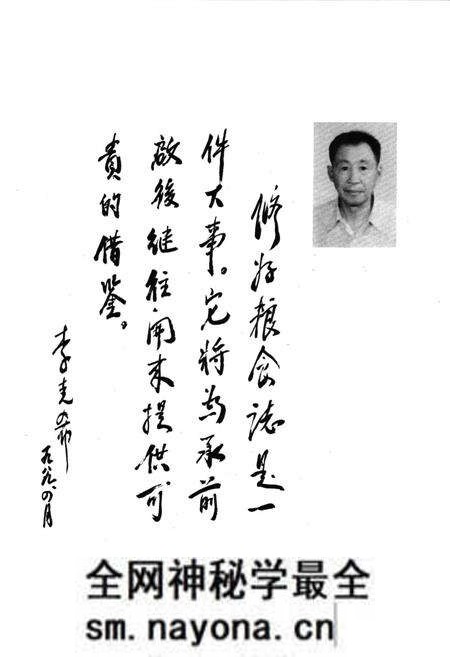 修好粮食誌是一
件大事。它将为承前
啟後继往開来提供可
貴的借鉴。
李克
一九九〇年四月
全网神秘学最全
sm.nayona.cn